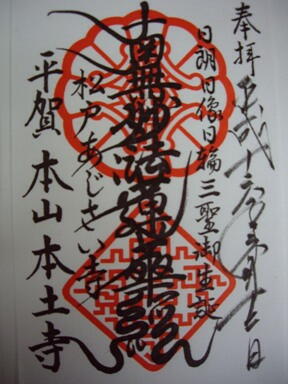 奉拝 平成十六年三月十二日
日朗日像日輪三聖御生誕
南無妙法蓮華経
松戸あじさい寺
平賀 本山 本土寺